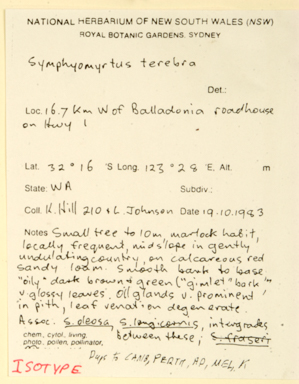 NATIONAL HERBARIUM OF NEW SOUTH WALES (NSW)
ROYAL BOTANIC GARDENS, SYDNEY
Symphyomyrtus terebra
Det.:
Loc. 16.7 km W of Balladonia roadhouse
on Hwy 1
Lat. 32° 16 'S Long. 123° 28 'E, Alt. m
State: WA Subdiv.:
Coll. K. Hill 210 & L. Johnson Date 19.10.1983
Notes Small tree to 10m, marlock habit,
locally frequent, midslope in gently
undulating country, on calcareous red
sandy loam. Smooth bark to base
"oily" dark brown + green ("gimlet" bark)
v glossy leaves. Oil glands v. prominent
in pith, leaf venation degenerate.
Assoc. S. oleosa, S. longicornis, intergrades
between these, S. fraseri
chem, cytol, living,
photo, pollen, pollinator,
Dups to CANB, PERTH, AD, MEL, K
ISOTYPE